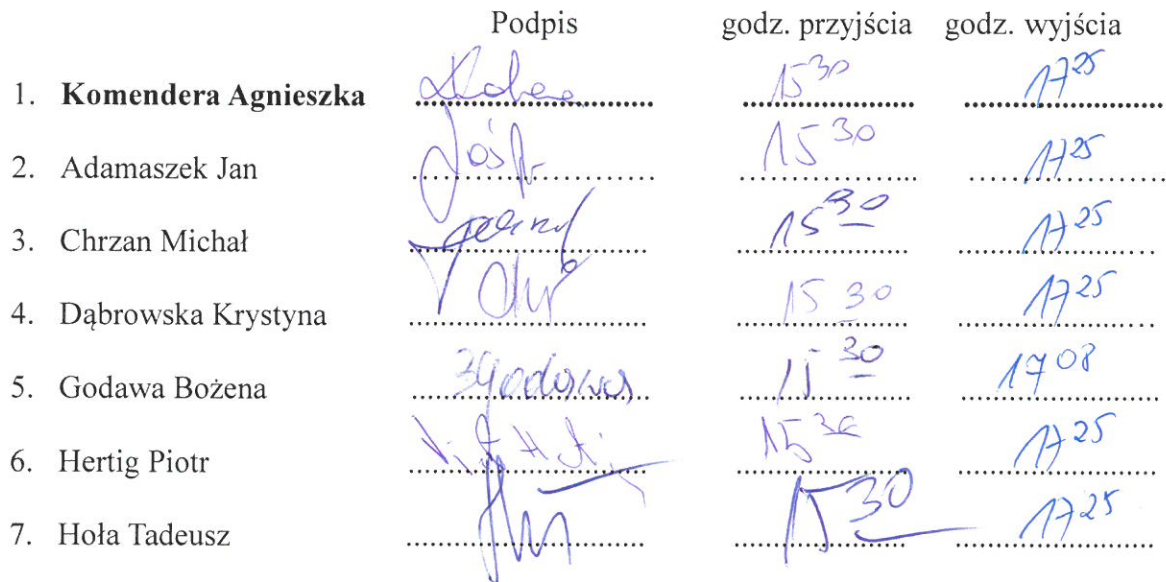 Podpis godz. przyjścia godz. wyjścia
1. Komendera Agnieszka 15 30 17 25
2. Adamaszek Jan 15 30 17 25
3. Chrzan Michał 15 30 17 25
4. Dąbrowska Krystyna 15 30 17 25
5. Godawa Bożena BGodawa 15 30 17 08
6. Hertig Piotr 15 30 17 25
7. Hoła Tadeusz 15 30 17 25